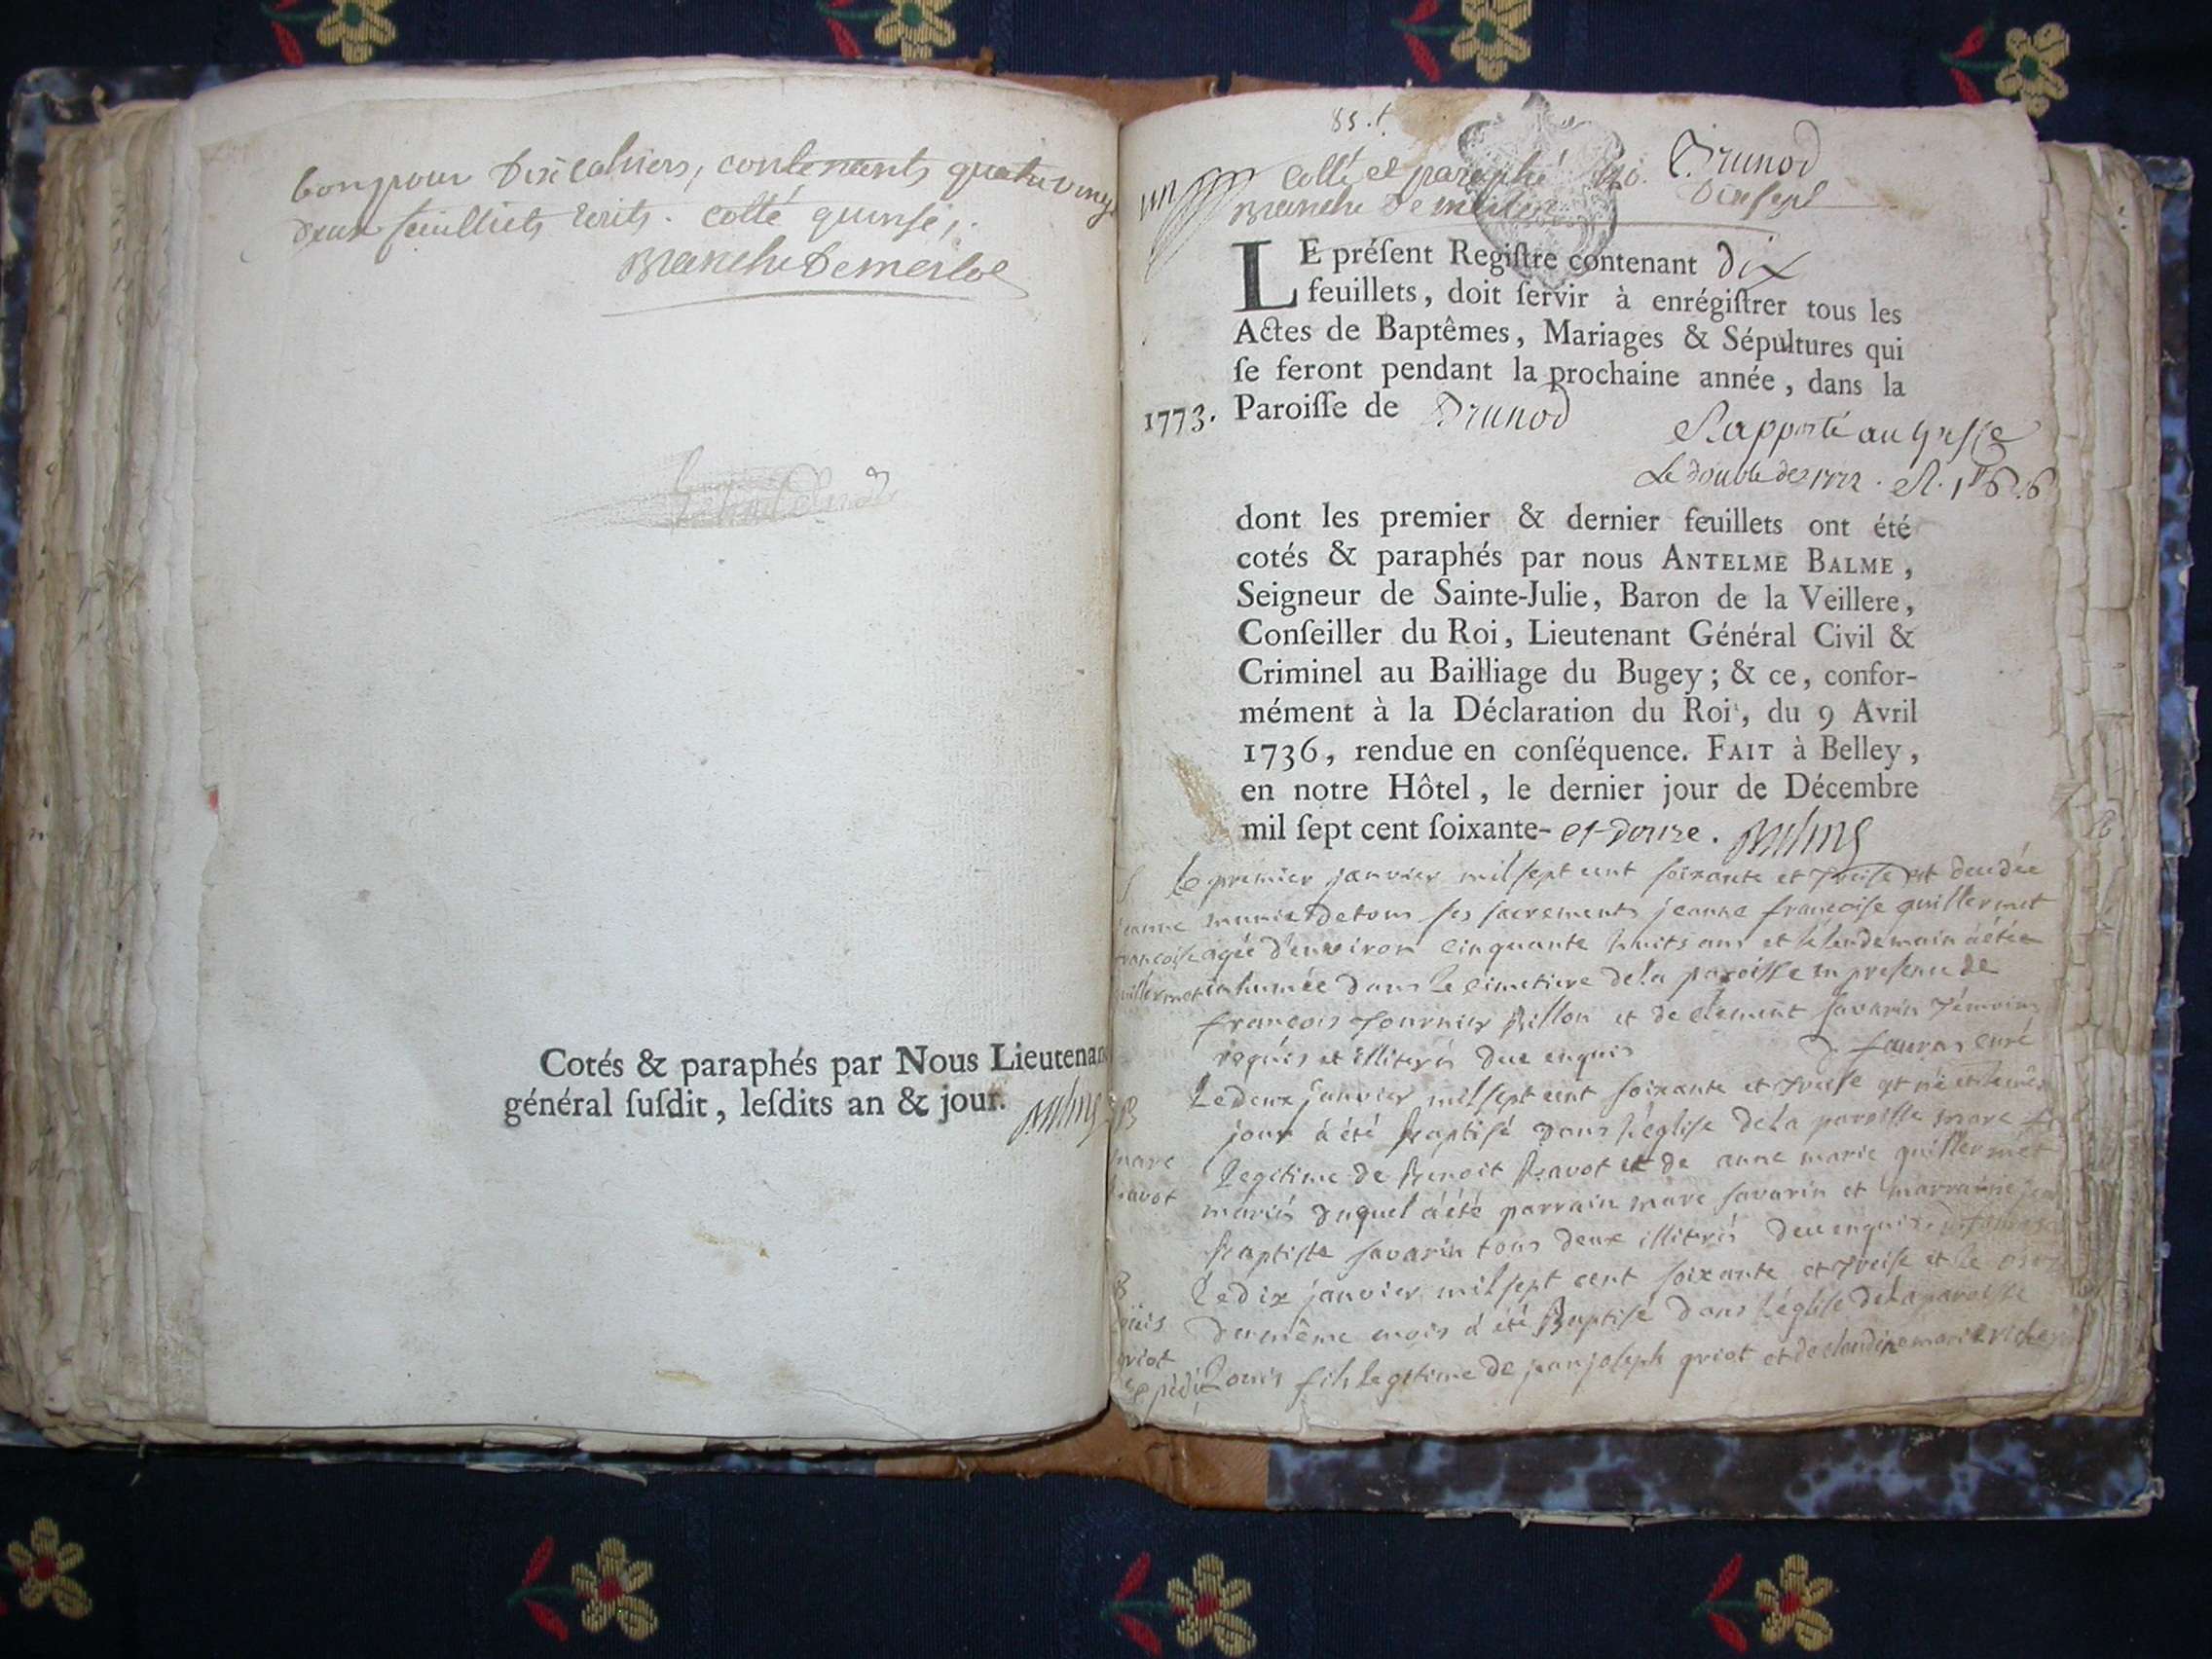 bon pour dix cahiers, contenants quatre vingt
deux feuilliets ecrits. cotté quinse,.
Cotés & paraphés par Nous Lieutenan
général ſuſdit, leſdits an & jour.
85.
un
Cotté et paraphé Brunod
Dixsept
LE préſent Regiſtre contenant dix
feuillets, doit ſervir à enrégiſtrer tous les
Actes de Baptêmes, Mariages & Sépultures qui
ſe feront pendant la prochaine année, dans la
1773. Paroiſſe de Brunod
Rapporté au Greffe
Le double de 1772.
dont les premier & dernier feuillets ont été
cotés & paraphés par nous ANTELME BALME,
Seigneur de Sainte-Julie, Baron de la Veillere,
Conſeiller du Roi, Lieutenant Général Civil &
Criminel au Bailliage du Bugey; & ce, confor-
mément à la Déclaration du Roi, du 9 Avril
1736, rendue en conſéquence. FAIT à Belley,
en notre Hôtel, le dernier jour de Décembre
mil ſept cent ſoixante- et douze. Balme
S
jeanne
francoise
guillermet
Le premier janvier mil sept cent soixante et treise est decedée
munie de tous ses sacrements jeanne francoise guillermet
agée d'environ cinquante huits ans et le lendemain a étée
inhumée dans le cimetiere de la paroisse en presence de
francois tournier billon et de clement savarin témoins
requis et illiterés de ce enquis curé
B
marc
bravot
Le deux janvier mil sept cent soixante et treise est né et le même
jour a été baptisé dans l'église de la paroisse marc
legitime de benoit bravot et de anne marie guillermet
mariés duquel a été parrain marc savarin et marraine
baptiste savarin tous deux illiterés de ce enquis
B
louis
griot
Le dix janvier mil sept cent soixante et treise et le
du même mois a été Baptisé dans l'église de la paroisse
Louis fils legitime de jean joseph griot et de claudine marie